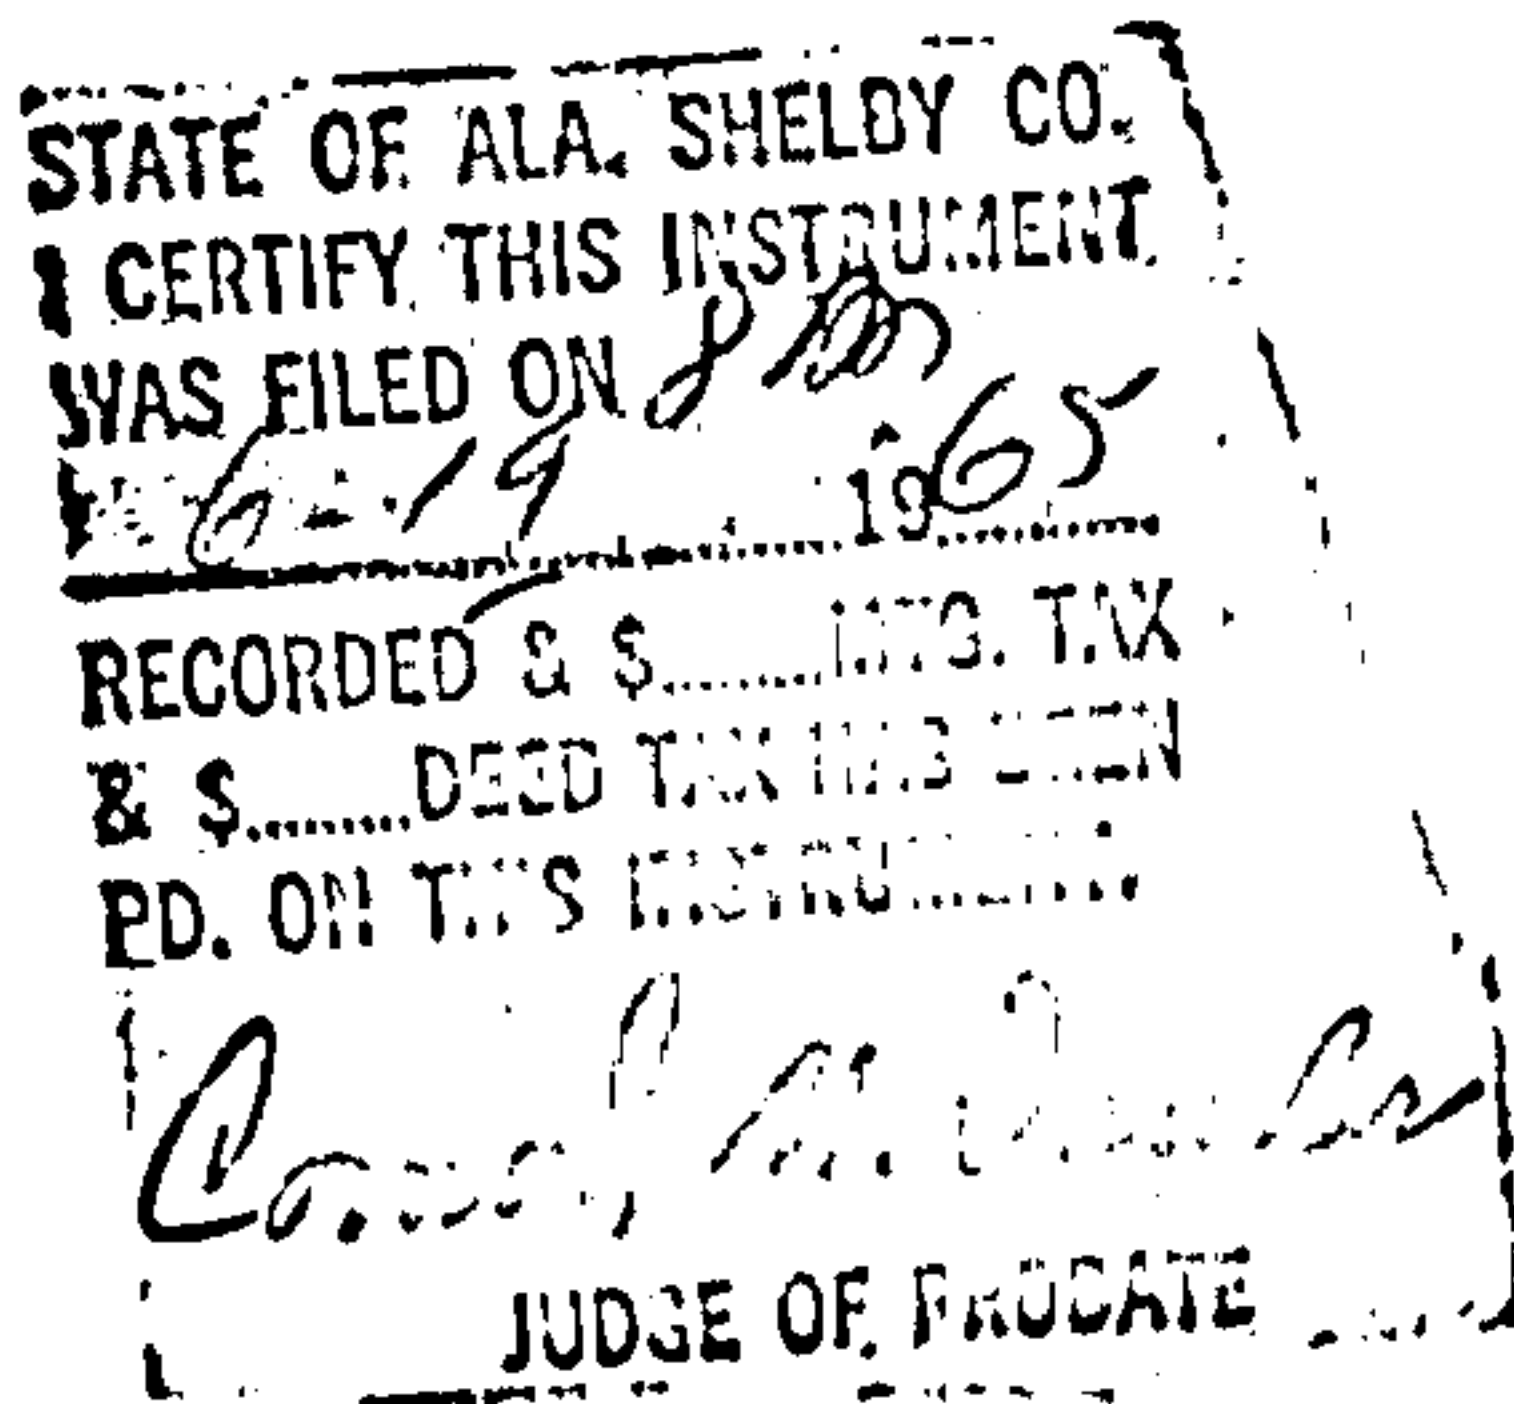 STATE OF ALA. SHELBY CO.
I CERTIFY THIS INSTRUMENT
WAS FILED ON 8 AM
6-19 1965
RECORDED & $........MTG. TAX
& $........DEED TAX HAS BEEN
PD. ON THIS INSTRUMENT.
JUDGE OF PROBATE